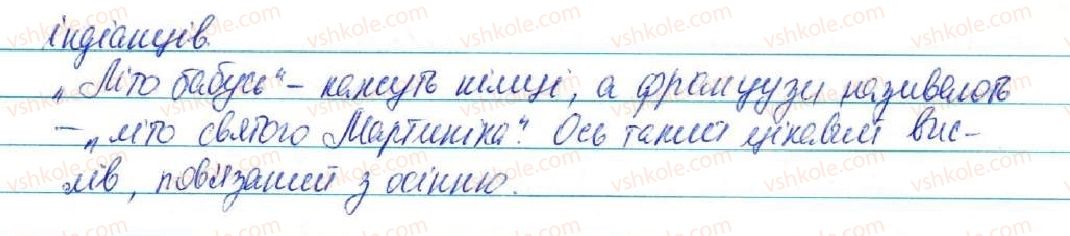 індіанців.
„Літо бабусь" – кажуть німці, а французи називають
– „літо святого Мартиніка". Ось такий цікавий вис-
лів, пов'язаний з осінню.